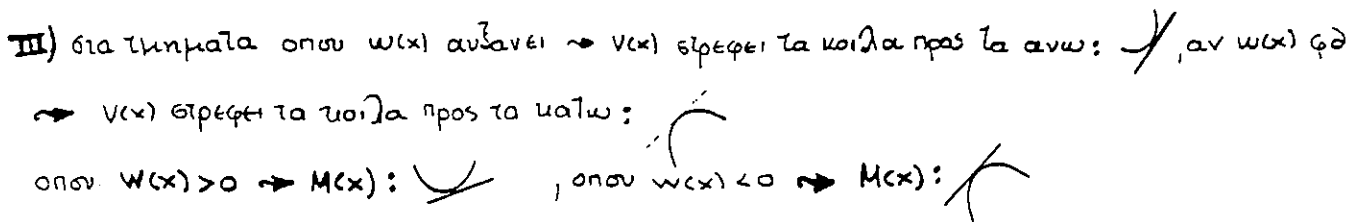 III) στα τμηματα οπου w(x) αυξανει → V(x) στρεφει τα κοιλα προς τα ανω: , αν w(x) φθ
→ V(x) στρεφει τα κοιλα προς τα κατω:
οπου W(x)>0 → M(x): , οπου w(x)<0 → M(x):